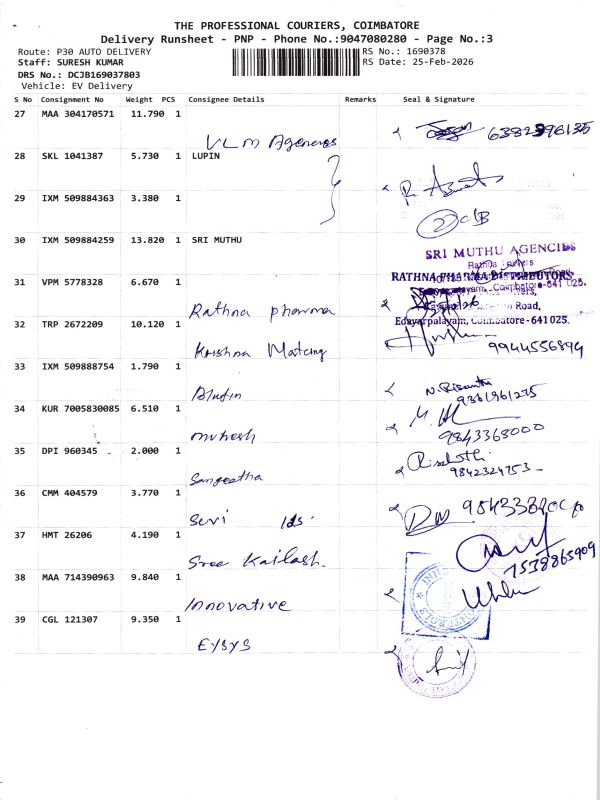 THE PROFESSIONAL COURIERS, COIMBATORE
Delivery Runsheet - PNP - Phone No.:9047080280 - Page No.:3
Route: P30 AUTO DELIVERY RS No.: 1690378
Staff: SURESH KUMAR RS Date: 25-Feb-2026
DRS No.: DCJB169037803
Vehicle: EV Delivery
S No Consignment No Weight PCS Consignee Details Remarks Seal & Signature
27 MAA 304170571 11.790 1
VLM Agencies
28 SKL 1041387 5.730 1 LUPIN
29 IXM 509884363 3.380 1
30 IXM 509884259 13.820 1 SRI MUTHU
SRI MUTHU AGENCIES
31 VPM 5778328 6.670 1
RATHNA PHARMA DISTRIBUTORS
Rathna pharma
Edayarpalayam, Coimbatore-641 025.
32 TRP 2672209 10.120 1
Krishna Matcing 9944556894
33 IXM 509888754 1.790 1
9361961275
34 KUR 7005830085 6.510 1
mukesh 9843363000
35 DPI 960345 2.000 1
Sangeetha 9842324753
36 CMM 404579 3.770 1
37 HMT 26206 4.190 1
Sree Kailash. 7538865909
38 MAA 714390963 9.840 1
Innovative
39 CGL 121307 9.350 1
EYSYS